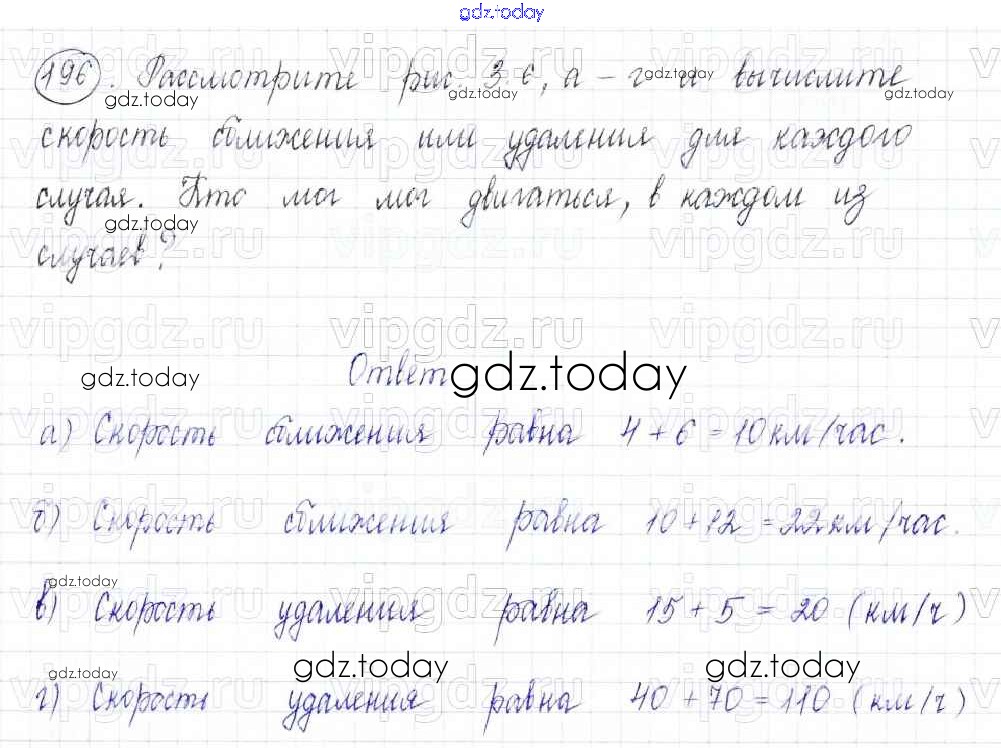 gdz.today
196. Рассмотрите рис. 3.6, а – г и вычислите
gdz.today gdz.today
скорость сближения или удаления для каждого
случая. Кто мог мог двигаться, в каждом из
gdz.today
случаев?
vipgdz.ru vipgdz.ru vipgdz.ru
Ответ
gdz.today gdz.today
а) Скорость сближения равна 4 + 6 = 10 км/час.
б) Скорость сближения равна 10 + 12 = 22 км/час.
gdz.today
в) Скорость удаления равна 15 + 5 = 20 (км/ч)
gdz.today gdz.today gdz.today
г) Скорость удаления равна 40 + 70 = 110 (км/ч)